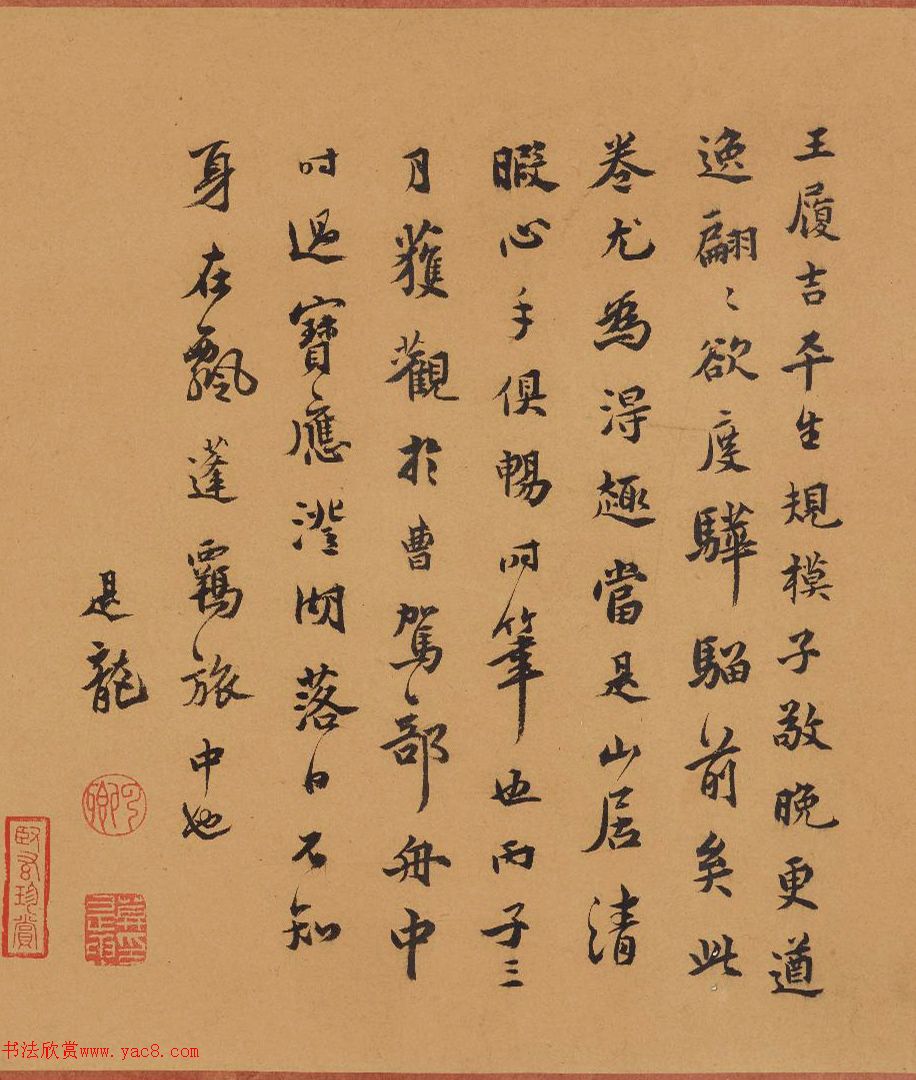 王履吉平生規模子敬晚更遒
逸翩〻欲度驊騮前矣此
卷尤爲得趣當是山居清
暇心手俱暢時筆也丙子三
月獲觀於曹駕部舟中
時過寶應澄湖落日不知
身在飄蓬羈旅中也
是龍
臥雲珍賞
书法欣赏www.yac8.com